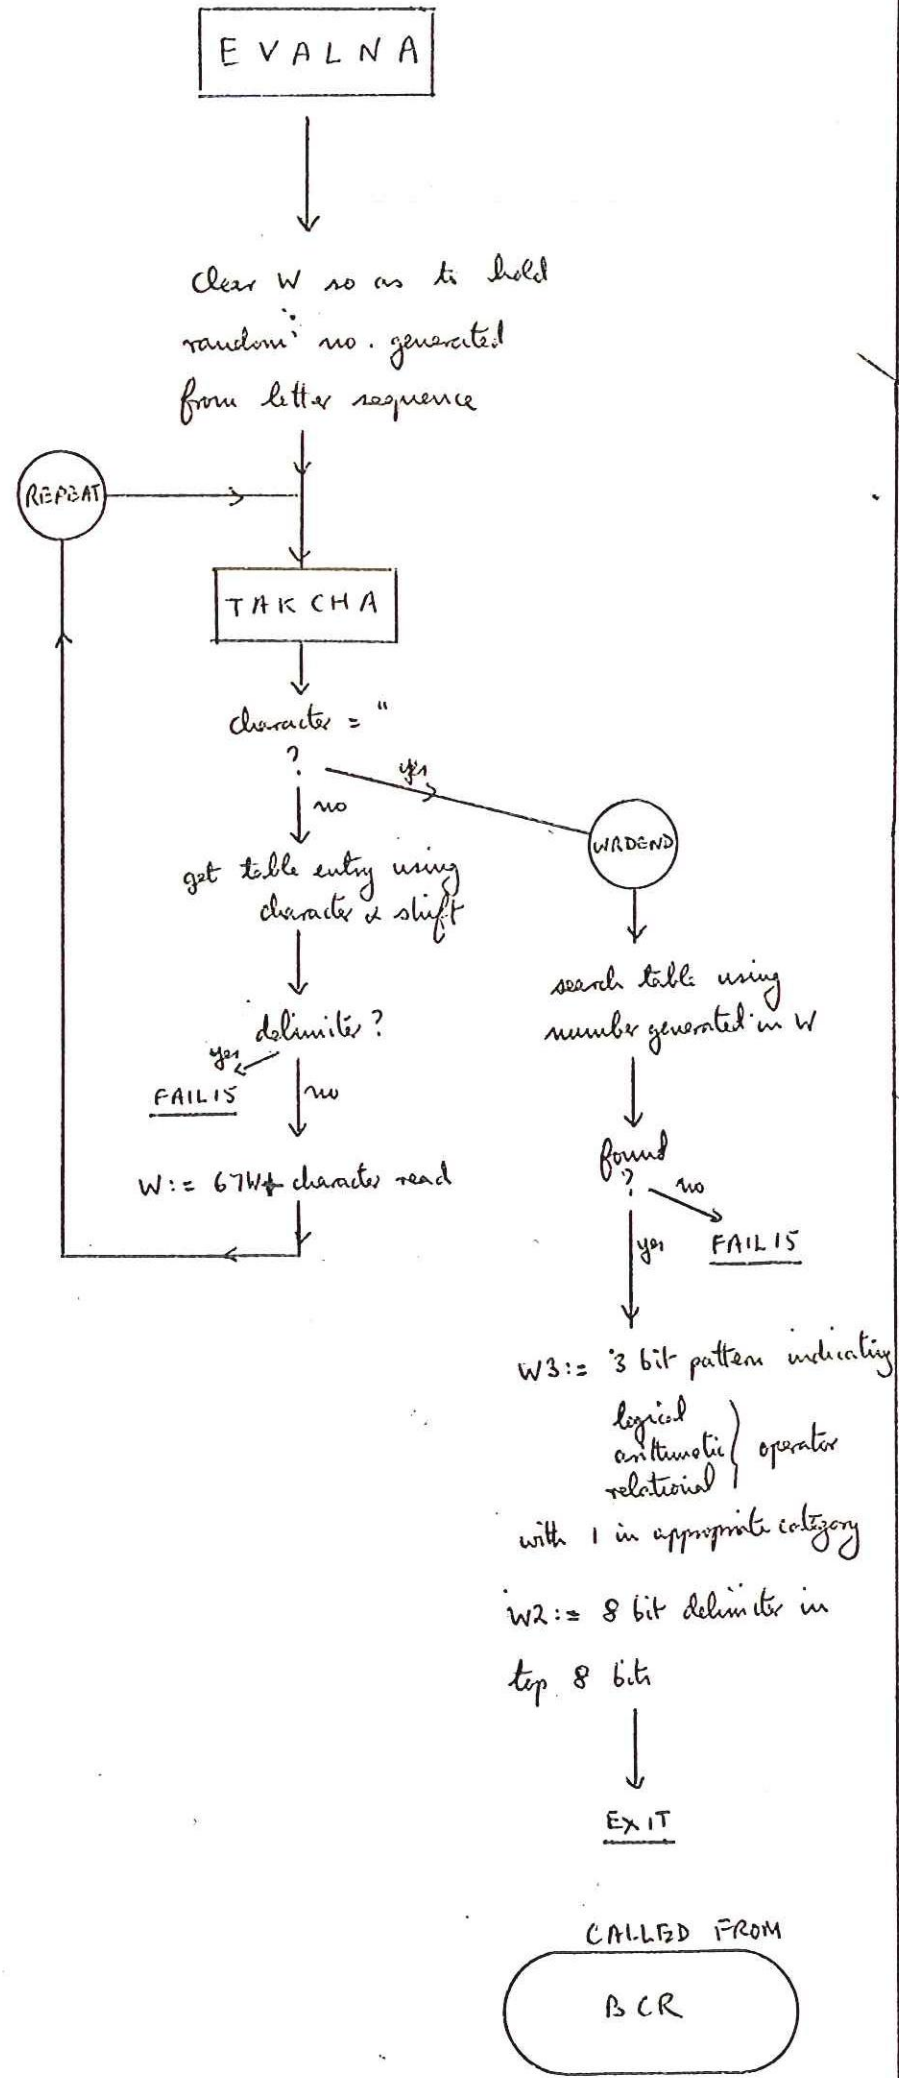 EVALNA
Clear W so as to hold
random no. generated
from letter sequence
REPEAT
TAKCHA
character = "
?
yes
no
WRDEND
get table entry using
character & shift
delimiter?
yes
FAIL15
no
W:= 67W+ character read
search table using
number generated in W
found
?
no
FAIL15
yes
W3:= 3 bit pattern indicating
logical
arithmetic
relational
operator
with 1 in appropriate category
W2:= 8 bit delimiter in
top 8 bits
EXIT
CALLED FROM
BCR